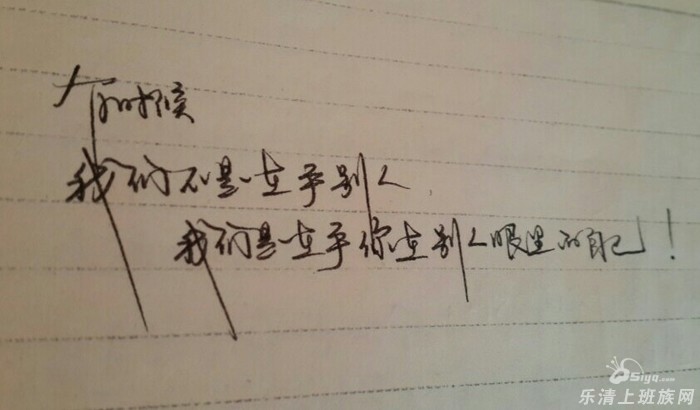 有时候
我们不是在乎别人
我们是在乎你在别人眼里的自己！
Siyq.com
乐清上班族网